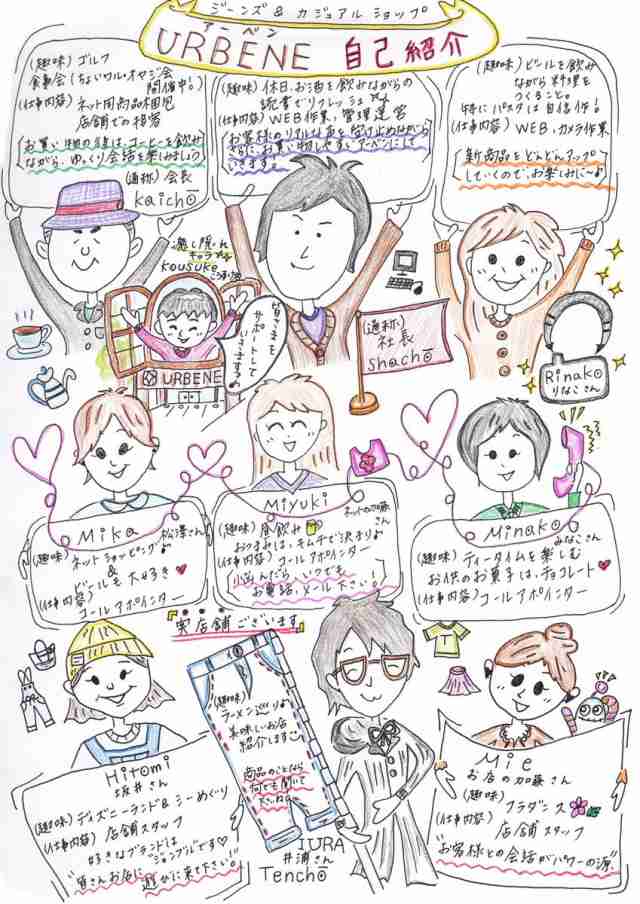 ジーンズ&カジュアルショップ
アーベン
URBENE 自己紹介
(趣味) ゴルフ
食事会(ちょいワル・オヤジ会
開催中!)
(仕事内容) ネット用商品相児
店舗での接客
お買い物の後は、コーヒーを飲み
ながら、ゆっくり会話を楽しみましょう
(通称) 会長
kaichō
(趣味) 休日、お酒を飲みながらの
読書でリフレッシュ
(仕事内容) WEB作業、管理運営
お客様のリアルな声を受け止めながら
お買い物しやすいアーベンにして
いきます。
(趣味) ビールを飲み
ながら料理を
つくること。
特にパスタは自信作!
(仕事内容) WEB、カメラ作業
新商品をどんどんアップ
していくので、お楽しみに〜♪
癒し隠れ
キャラ
KOUSUKE
URBENE
皆さまを
サポートして
いきますっ
(通称)
社長
shachō
Rinako
りなこさん
Mika 松澤さん
(趣味) ネットショッピング♪
&
ビールも大好き♥
(仕事内容)
コールアポインター
Miyuki ネットの加藤
さん
(趣味) 昼飲み
おつまみは、キムチで決まり♪
(仕事内容) コールアポインター
いつでも
お電話、メール下さい!
Minako みなこさん
(趣味) ティータイムを楽しむ
お供のお菓子は、チョコレート♥
(仕事内容) コールアポインター
『実店舗ございます』
Hitomi
坂井さん
(趣味) ディズニーランド&シーめぐり
(仕事内容) 店舗スタッフ
好きなブランドは
"ジャンブルです♡
"皆さんお店に遊びに来て下さい。"
(趣味)
ラーメン巡り♪
美味しいお店
紹介します
商品のことなら
何でも聞いて
下さいね
IURA
井浦さん
Tenchō
T
Mie
お店の加藤さん
(趣味)
フラダンス
(仕事内容)
店舗スタッフ
"お客様との会話がパワーの源"